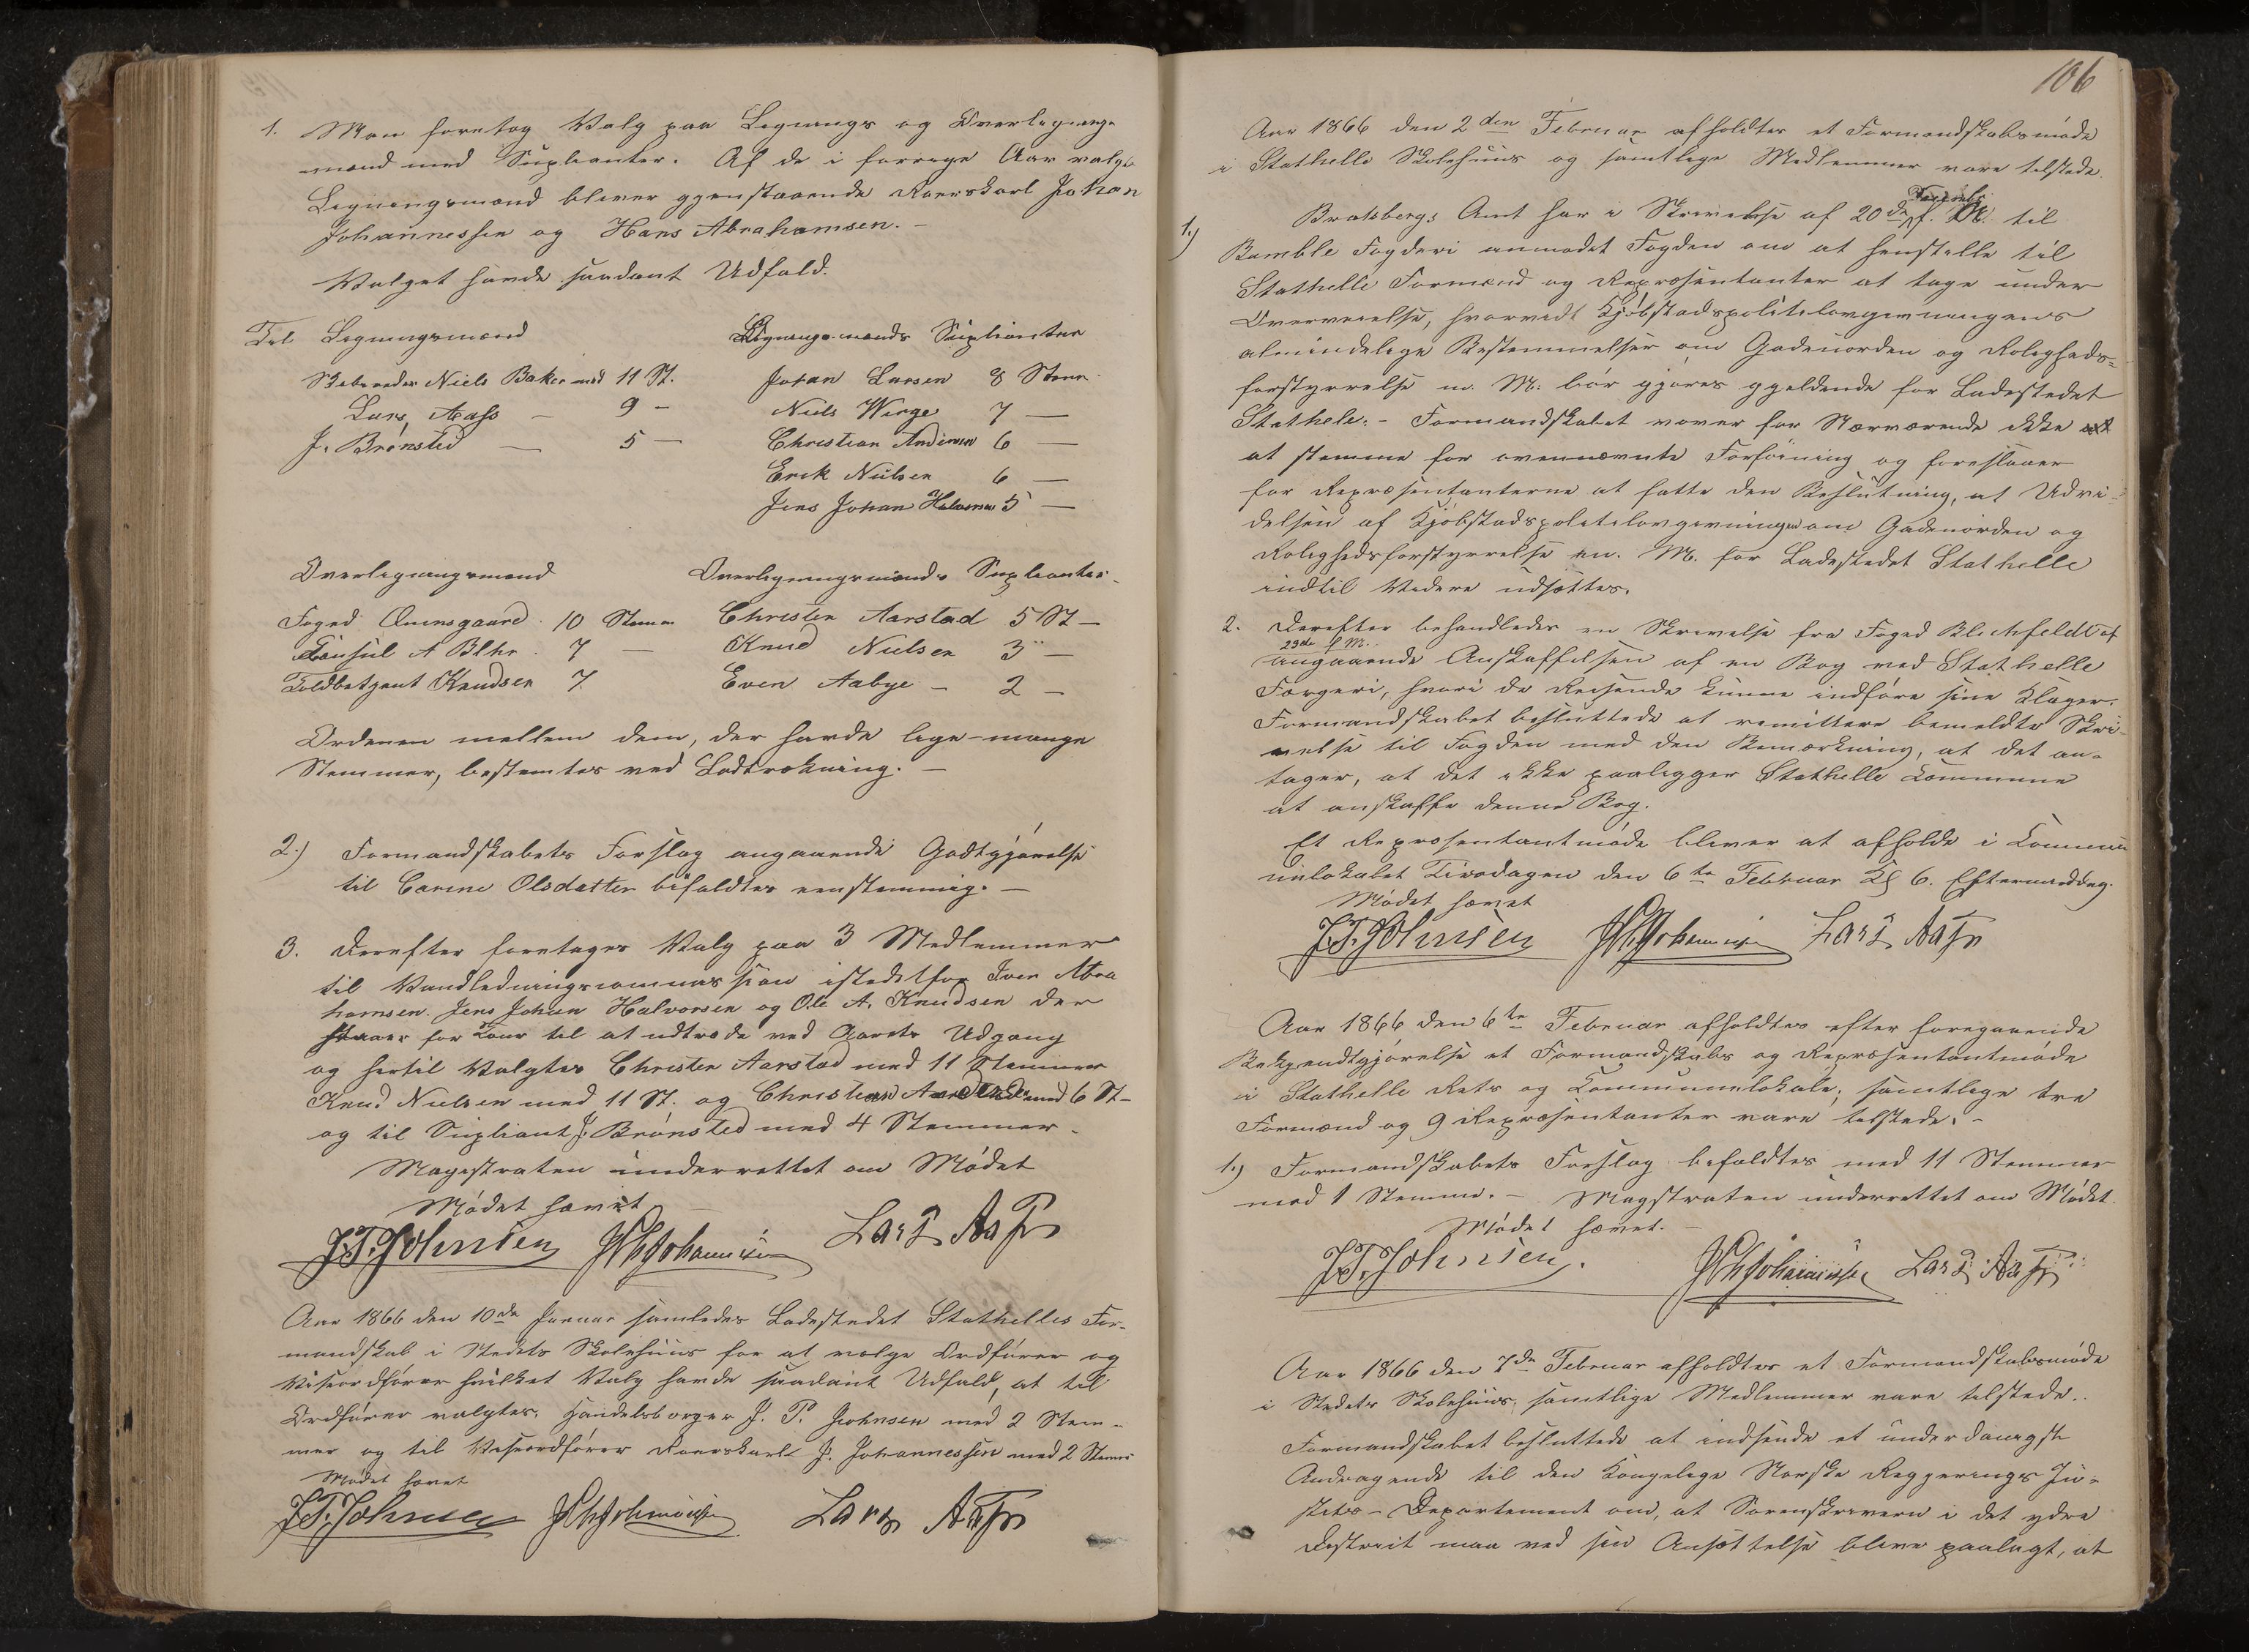 1. Man foretog Valg paa Lignings og Overlignings-
mænd med Suplianter. Af de i forrige Aar valgte
Ligningsmænd bliver gjenstaaende Kverskarl Johan
Johannessen og Hans Abrahamsen. -
Valget havde saadant Udfald.
Til Ligningsmænd
Skibsreder Niels Baker med 11 St.
Lars Aass — 9 —
J. Brønsted — 5 —
Ligningsmænds Suplianter
Johan Larsen 8 Stem
Niels Wirge 7 —
Christian Andersen 6 —
Erik Nielsen 6 —
Jens Johan Halvorsen 5 —
Overligningsmænd
Foged 10 Stemmer
Consul A Blhr. 7 —
Toldbetjent Knudsen 7.
Overligningsmænds Suplianter.
Christen Aarstad 5 St —
Knud Nielsen 3 —
Even Aabye — 2 —
Ordenen mellem dem, der havde lige mange
Stemmer, bestemtes ved Lodtrækning. —
2.) Formandskabets Forslag angaaende Godtgjørelse
til Carine Olsdatter bifaldtes eenstemmig. —
3. Derefter foretages Valg paa 3 Medlemmer
til Vandledningscommission istedetfor Iver Abra
hamsen. Jens Johan Halvorsen og Ole A. Knudsen der
staaer for Tour til at udtræde ved Aarets Udgang
og hertil Valgtes Christen Aarstad med 11 Stemmer
Knud Nielsen med 11 St. og Christian Andersen med 6 St —
og til Supliant J. Brønsted med 4 Stemmer.
Magistraten underrettet om Mødet
Mødet hævet
J.T. Johnsen J Johannessen Lars Aass
Aar 1866 den 10de Januar samledes Ladestedet Stathelles For-
mandskab i Stedets Skolehuus for at vælge Ordfører og
Viseordfører hvilket Valg havde saadant Udfald, at til
Ordfører valgtes. Handelsborger J. T. Johnsen med 2 Stem-
mer og til Viseordfører Kverskarl J. Johannessen med 2 Stemmer
Mødet hævet
J.T. Johnsen J Johannessen Lars Aass
106
Aar 1866 den 2den Februar afholdtes et Formandskabsmøde
i Stathelle Skolehuus og samtlige Medlemmer vare tilstede.
1.) Bratsbergs Amt har i Skrivelse af 20de f. M. til
Bamble Fogderi anmodet Fogden om at henstille til
Stathelle Formænd og Repræsentanter at tage under
Overveielse, hvorvidt Kjøbstadspolitilovgivningens
almindelige Bestemmelser om Gadeuorden og Roligheds-
forstyrrelse m. M. bør gjøres gjeldende for Ladestedet
Stathelle. - Formandskabet vover for Nærværende ikke
at stemme for ovennævnte Forføining og foreslaaer
for Repræsentanterne at fatte den Beslutning, at Udvi-
delsen af Kjøbstadspolitilovgivningen om Gadeuorden og
Rolighedsforstyrrelse m. M. for Ladestedet Stathelle
indtil Videre udsættes.
2. Derefter behandledes en Skrivelse fra Foged Blichfeldt af
29de f. M.
angaaende Anskaffelsen af en Bog ved Stathelle
Færgeri, hvori de Reisende kunne indføre sine Klager.
Formandskabet besluttede at remittere bemeldte Skri-
velse til Fogden med den Bemærkning, at det an-
tager, at det ikke paaligger Stathelle Commune
at anskaffe denne Bog.
Et Repræsentantmøde bliver at afholde i Commu
nelokalet Tirsdagen den 6te Februar Kl 6. Eftermiddag.
Mødet hævet
J.T. Johnsen J Johannessen Lars Aass
Aar 1866 den 6te Februar afholdtes efter foregaaende
Bekjendtgjørelse et Formandskabs og Repræsentantmøde
i Stathelle Rets og Communelokale; samtlige tre
Formænd og 9 Repræsentanter vare tilstede. -
1.) Formandskabets Forslag bifaldtes med 11 Stemmer
mod 1 Stemme. - Magistraten underrettet om Mødet.
Mødet hævet. -
J.T. Johnsen. J Johannessen Lars Aass
Aar 1866 den 7de Februar afholdtes et Formandskabsmøde
i Stedets Skolehuus; samtlige Medlemmer vare tilstede.
Formandskabet besluttede at indsende et underdanigst
Andragende til den Kongelige Norske Regjerings Ju-
stits-Departement om, at Sorenskriveren i det ydre
Distrikt maa ved sin Ansættelse blive paalagt, at